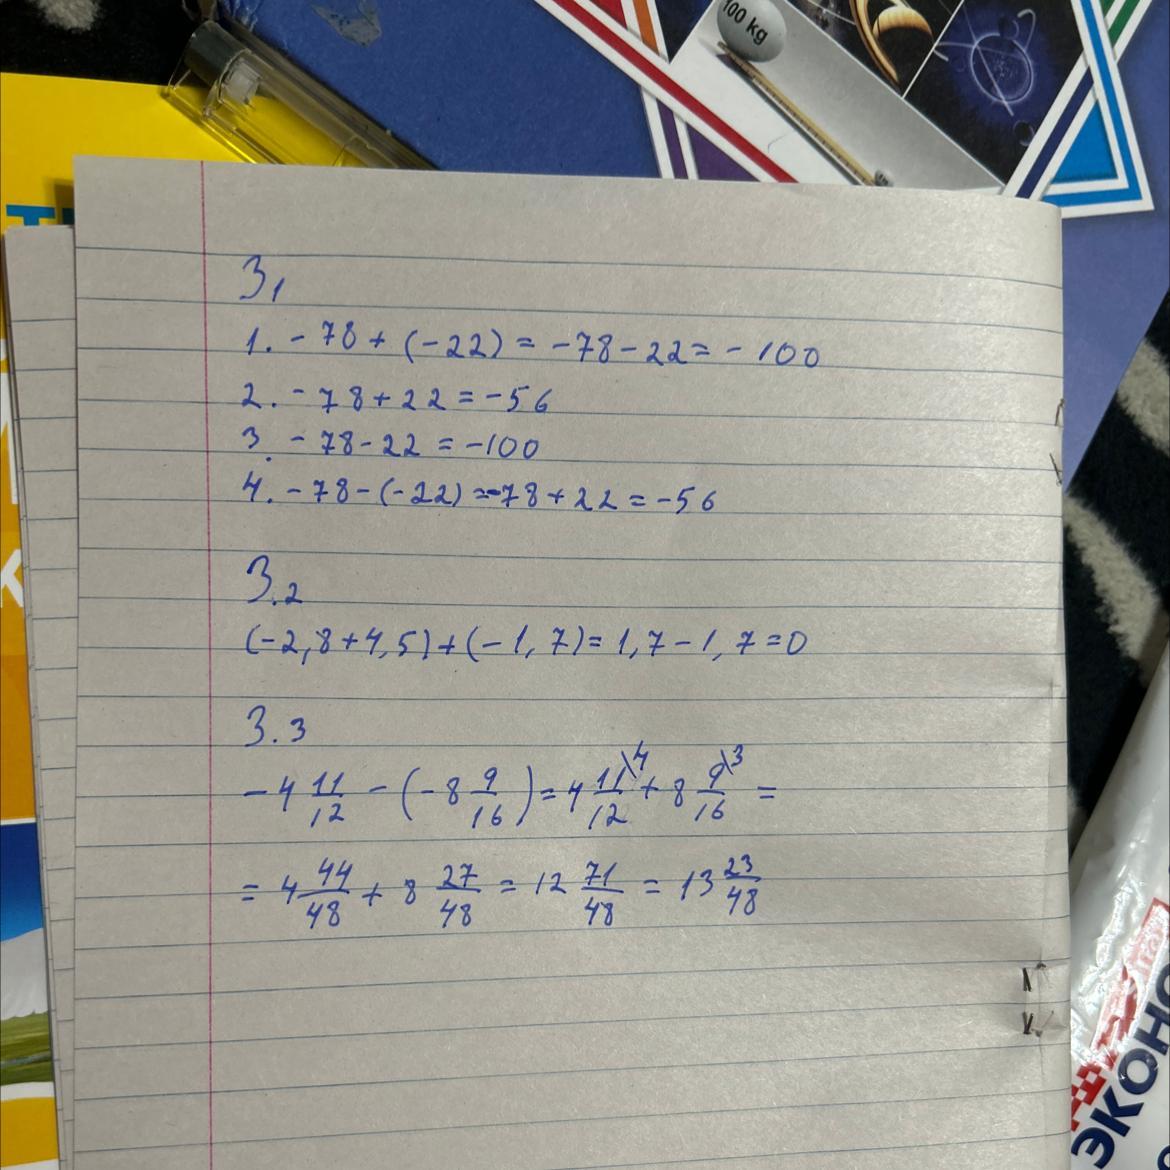 100 kg
3.1
1. -78 + (-22) = -78 - 22 = -100
2. -78 + 22 = -56
3. -78 - 22 = -100
4. -78 - (-22) = -78 + 22 = -56
3.2
(-2,8+4,5)+(-1,7)=1,7-1,7=0
3.3
-4 11/12 - (-8 9/16) = 4 11\4/12 + 8 9\3/16 =
= 4 44/48 + 8 27/48 = 12 71/48 = 13 23/48
ЭКОНО